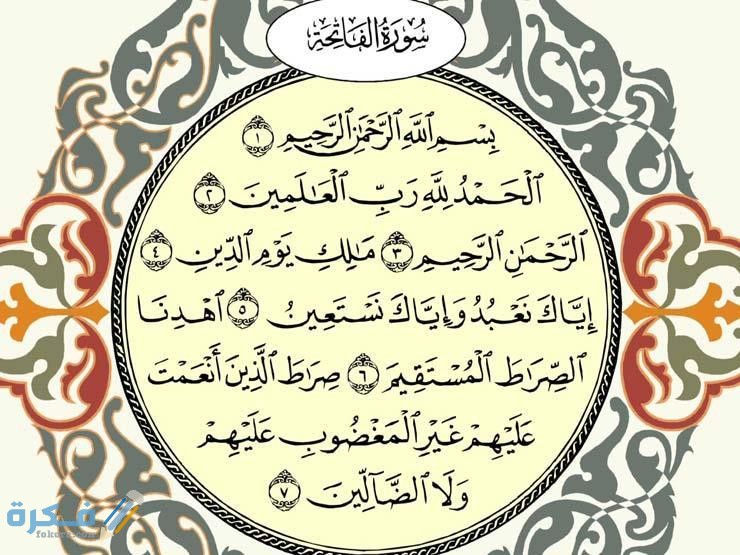 سُورَةُ الْفَاتِحَةِ
بِسْمِ ٱللَّهِ ٱلرَّحْمَٰنِ ٱلرَّحِيمِ ١
ٱلْحَمْدُ لِلَّهِ رَبِّ ٱلْعَٰلَمِينَ ٢
ٱلرَّحْمَٰنِ ٱلرَّحِيمِ ٣ مَٰلِكِ يَوْمِ ٱلدِّينِ ٤
إِيَّاكَ نَعْبُدُ وَإِيَّاكَ نَسْتَعِينُ ٥ ٱهْدِنَا
ٱلصِّرَٰطَ ٱلْمُسْتَقِيمَ ٦ صِرَٰطَ ٱلَّذِينَ أَنْعَمْتَ
عَلَيْهِمْ غَيْرِ ٱلْمَغْضُوبِ عَلَيْهِمْ
وَلَا ٱلضَّآلِّينَ ٧
فكرة
fokera.com